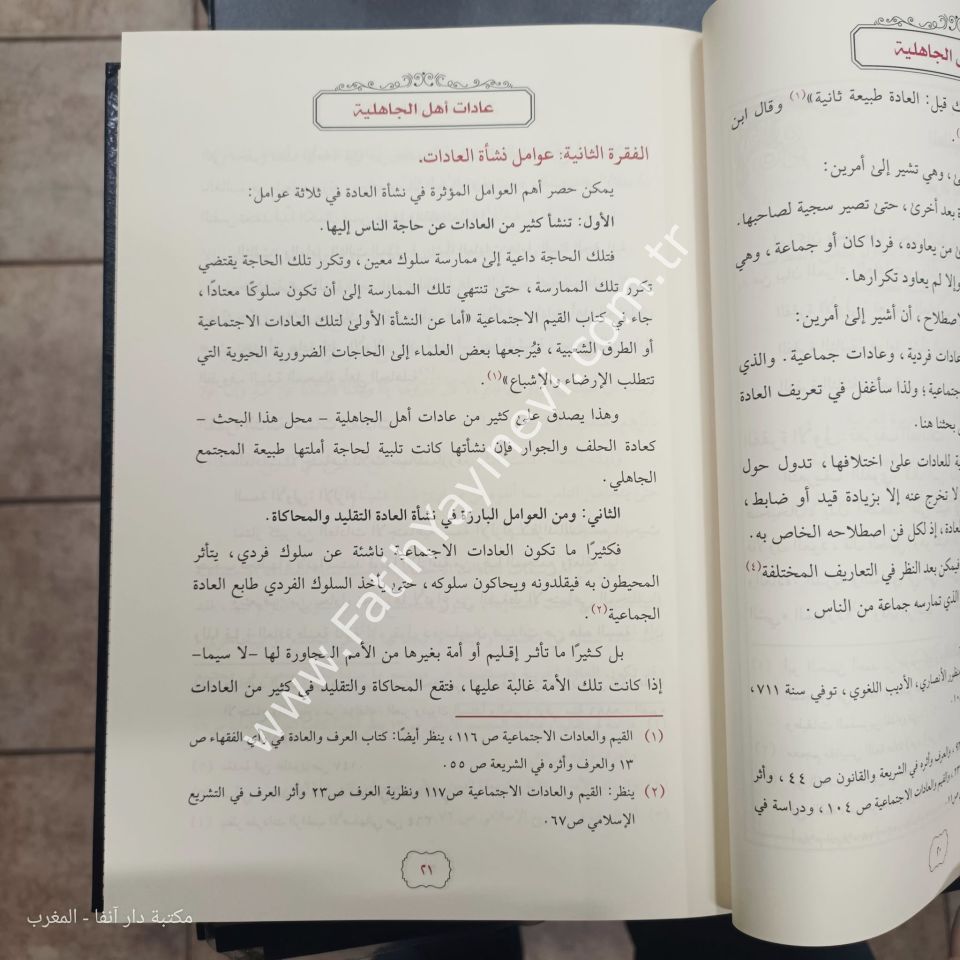 عادات أهل الجاهلية
الفقرة الثانية: عوامل نشأة العادات.
يمكن حصر أهم العوامل المؤثرة في نشأة العادة في ثلاثة عوامل:
الأول: تنشأ كثير من العادات عن حاجة الناس إليها.
فتلك الحاجة داعية إلىٰ ممارسة سلوك معين، وتكرر تلك الحاجة يقتضي
تكرر تلك الممارسة، حتىٰ تنتهي تلك الممارسة إلىٰ أن تكون سلوكًا معتادًا،
جاء في كتاب القيم الاجتماعية «أما عن النشأة الأولىٰ لتلك العادات الاجتماعية
أو الطرق الشعبية، فيُرجعها بعض العلماء إلىٰ الحاجات الضرورية الحيوية التي
تتطلب الإرضاء والإشباع»(١).
وهذا يصدق علىٰ كثير من عادات أهل الجاهلية – محل هذا البحث –
كعادة الحلف والجوار فإن نشأتها كانت تلبية لحاجة أملتها طبيعة المجتمع
الجاهلي.
الثاني: ومن العوامل البارزة في نشأة العادة التقليد والمحاكاة.
فكثيرًا ما تكون العادات الاجتماعية ناشئة عن سلوك فردي، يتأثر
المحيطون به فيقلدونه ويحاكون سلوكه، حتىٰ يأخذ السلوك الفردي طابع العادة
الجماعية(٢).
بل كثيرًا ما تأثر إقليم أو أمة بغيرها من الأمم المجاورة لها –لا سيما–
إذا كانت تلك الأمة غالبة عليها، فتقع المحاكاة والتقليد في كثير من العادات
(١) القيم والعادات الاجتماعية ص ١١٦، ينظر أيضًا: كتاب العرف والعادة في رأي الفقهاء ص
١٣ والعرف وأثره في الشريعة ص ٥٥.
(٢) ينظر: القيم والعادات الاجتماعية ص١١٧ ونظرية العرف ص٢٣ وأثر العرف في التشريع
الإسلامي ص٦٧.
٢١
الجاهلية
قيل: العادة طبيعة ثانية»(١) وقال ابن
وهي تشير إلىٰ أمرين:
بعد أخرىٰ، حتىٰ تصير سجية لصاحبها.
من يعاوده، فردا كان أو جماعة، وهي
وإلا لم يعاود تكرارها.
أن أشير إلىٰ أمرين:
عادات فردية، وعادات جماعية. والذي
ولذا سأغفل في تعريف العادة
بحثنا هنا.
للعادات علىٰ اختلافها، تدول حول
لا تخرج عنه إلا بزيادة قيد أو ضابط،
إذ لكل فن اصطلاحه الخاص به.
فيمكن بعد النظر في التعاريف المختلفة(٤)
الذي تمارسه جماعة من الناس.
الأنصاري، الأديب اللغوي، توفي سنة ٧١١،
والعرف وأثره في الشريعة والقانون ص ٤٤، وأثر
والقيم والعادات الاجتماعية ص ١٠٤، ودراسة في
٢٠
www.FatihYayinevi.com.tr
مكتبة دار آنفا - المغرب